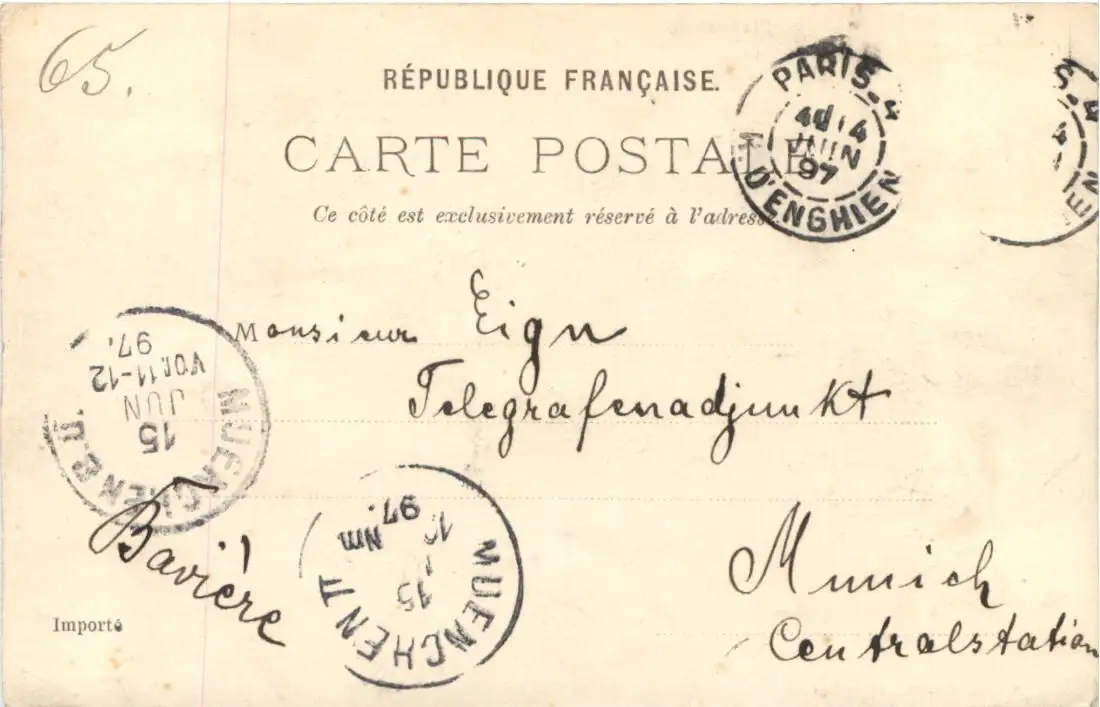 65.
RÉPUBLIQUE FRANÇAISE.
CARTE POSTALE
Ce côté est exclusivement réservé à l'adresse.
PARIS.4
14
JUIN
97
D'ENGHIEN
S.4
4
EN
Monsieur Eign
Telegrafenadjunkt
MUENCHEN II
15
JUN
VOR.11-12
97.
MUENCHEN II
15
Nm
97.
Bavière
Munich
Centralstation
Importé